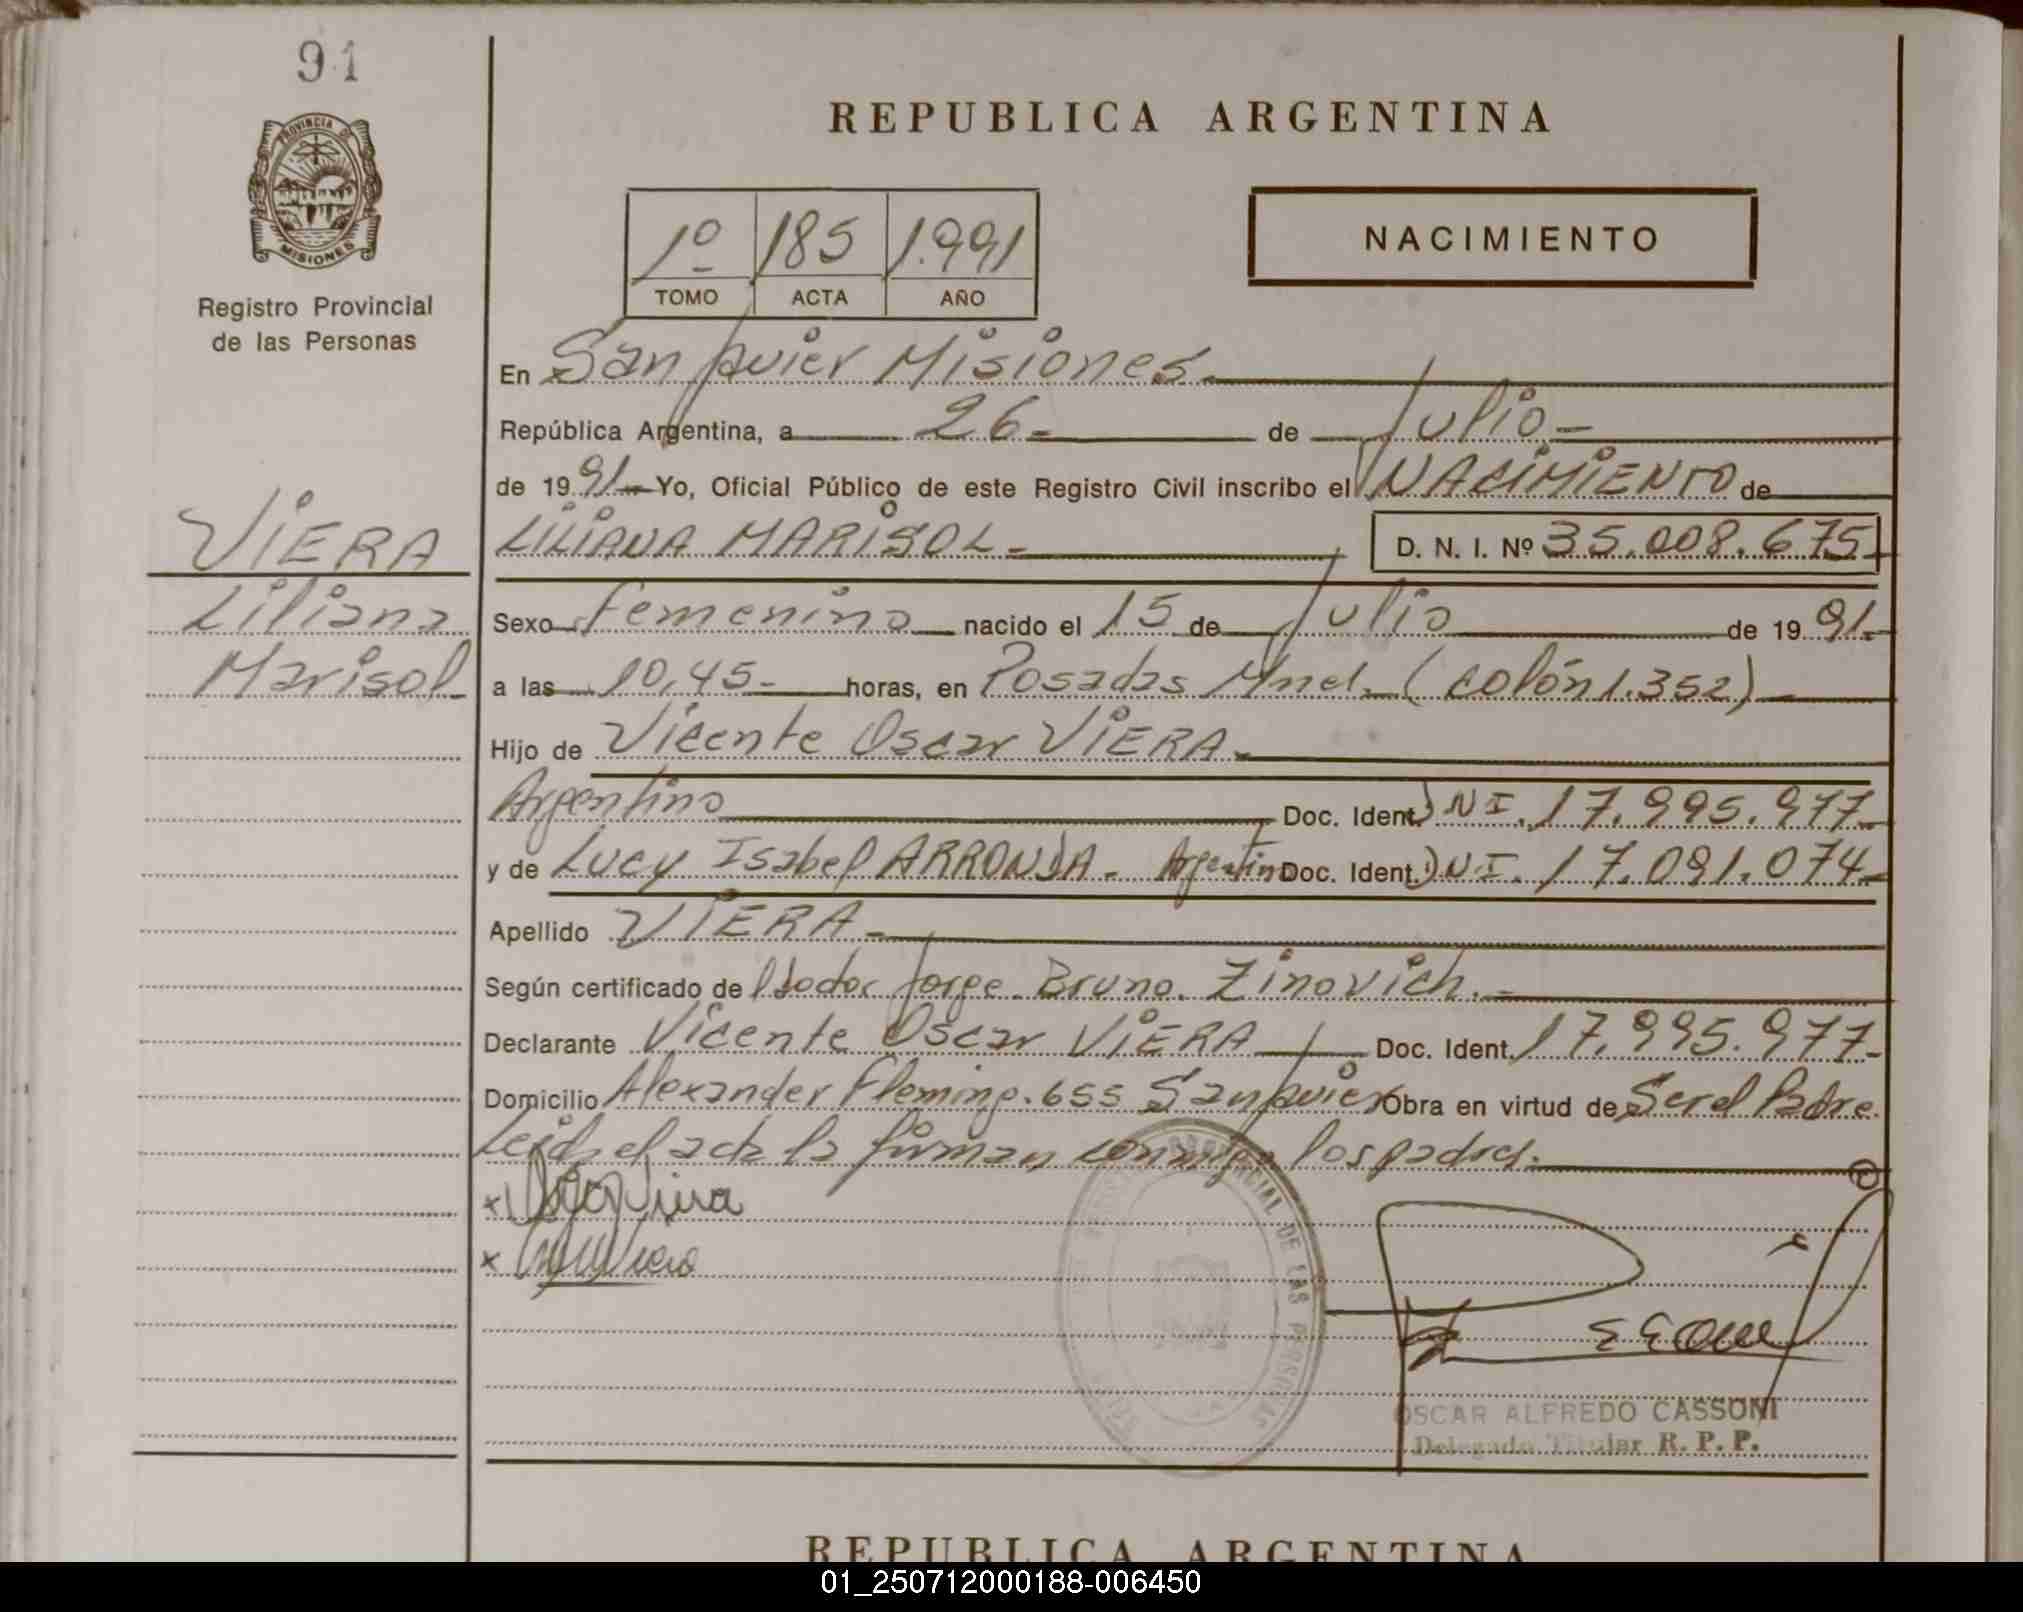 91
PROVINCIA DE
MISIONES
Registro Provincial
de las Personas
REPUBLICA ARGENTINA
1º 185 1.991
TOMO ACTA AÑO
NACIMIENTO
En San Javier Misiones
República Argentina, a 26 de Julio
de 1991 Yo, Oficial Público de este Registro Civil inscribo el NACIMIENTO de
VIERA
LILIANA MARISOL D. N. I. Nº 35.008.675
Liliana
Sexo Femenino nacido el 15 de Julio de 1991
Marisol
a las 10,45 horas, en Posadas Mnes. (Colón 1.352)
Hijo de Vicente Oscar VIERA
Argentino Doc. Ident. DNI. 17.995.977
y de Lucy Isabel ARRONDA - Argentina Doc. Ident. DNI. 17.091.074
Apellido VIERA
Según certificado de Doctor Jorge Bruno Zinovich.
Declarante Vicente Oscar VIERA Doc. Ident. 17.995.977
Domicilio Alexander Fleming. 655 San Javier Obra en virtud de Ser el Padre
Leida el acta la firman conmigo los padres.
OSCAR ALFREDO CASSONI
Delegado Titular R. P. P.
REPUBLICA ARGENTINA
01_250712000188-006450